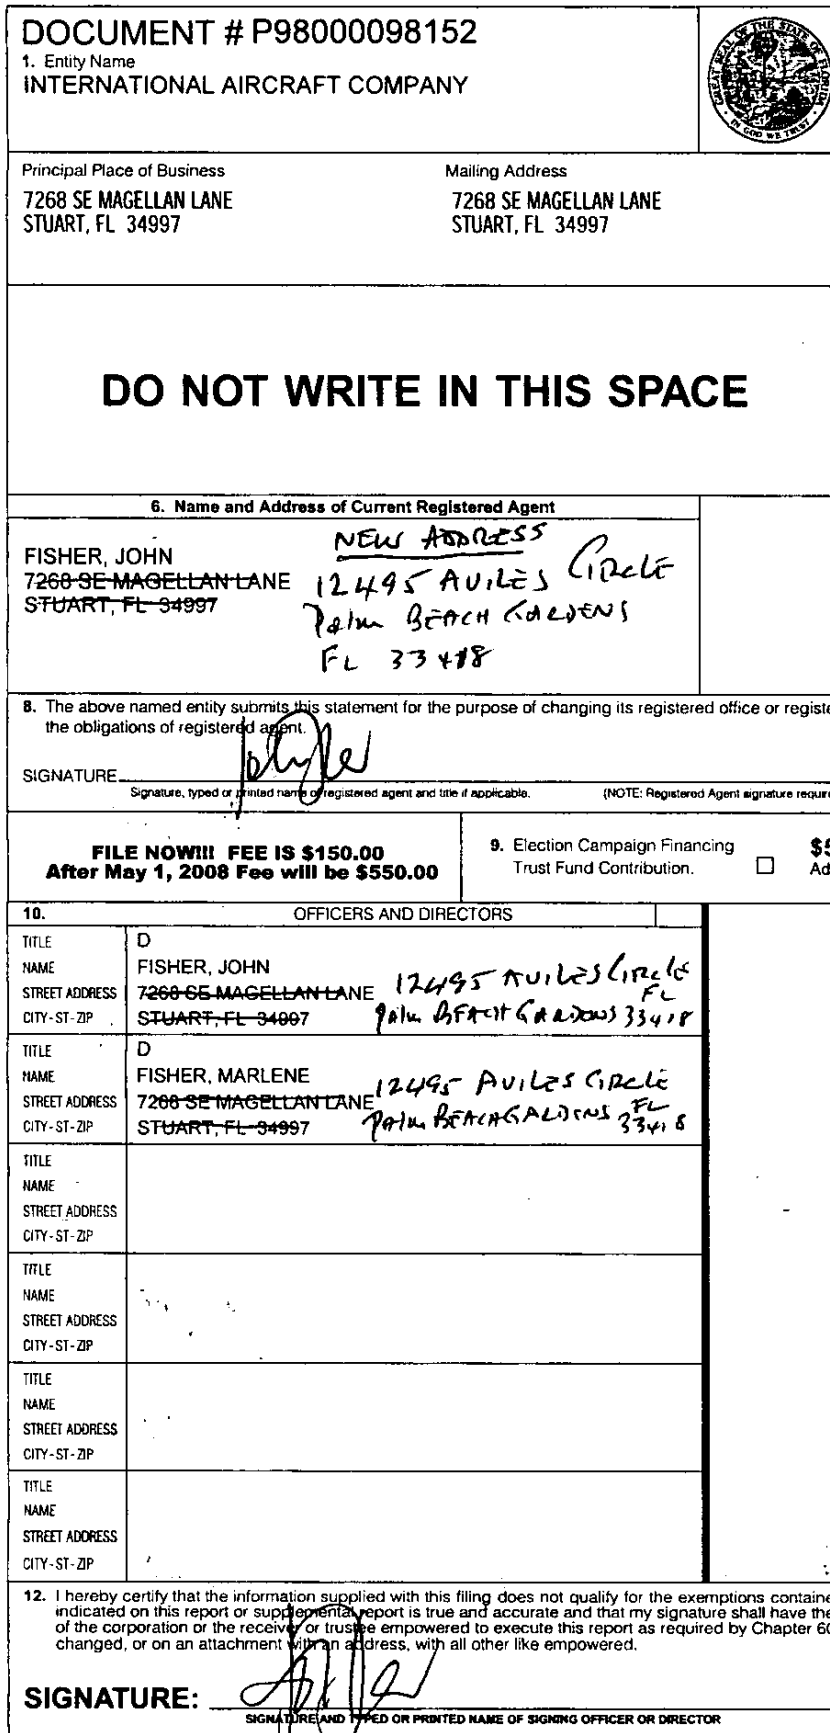 DOCUMENT # P98000098152
1. Entity Name
INTERNATIONAL AIRCRAFT COMPANY
GREAT SEAL OF THE STATE OF FLORIDA
IN GOD WE TRUST
Principal Place of Business Mailing Address
7268 SE MAGELLAN LANE 7268 SE MAGELLAN LANE
STUART, FL 34997 STUART, FL 34997
DO NOT WRITE IN THIS SPACE
6. Name and Address of Current Registered Agent
NEW ADDRESS
FISHER, JOHN
7268 SE MAGELLAN LANE 12495 AVILES CIRCLE
STUART, FL 34997 Palm BEACH GARDENS
FL 33418
8. The above named entity submits this statement for the purpose of changing its registered office or registe
the obligations of registered agent.
SIGNATURE
Signature, typed or printed name of registered agent and title if applicable. (NOTE: Registered Agent signature requir
FILE NOW!!! FEE IS $150.00
After May 1, 2008 Fee will be $550.00
9. Election Campaign Financing $5
Trust Fund Contribution. Ad
10. OFFICERS AND DIRECTORS
TITLE D
NAME FISHER, JOHN
STREET ADDRESS 7268 SE MAGELLAN LANE 12495 AVILES CIRCLE FL
CITY-ST-ZIP STUART, FL 34997 Palm BEACH GARDENS 33418
TITLE D
NAME FISHER, MARLENE
STREET ADDRESS 7268 SE MAGELLAN LANE 12495 AVILES CIRCLE
CITY-ST-ZIP STUART, FL 34997 Palm BEACH GARDENS FL 33418
TITLE
NAME
STREET ADDRESS
CITY-ST-ZIP
TITLE
NAME
STREET ADDRESS
CITY-ST-ZIP
TITLE
NAME
STREET ADDRESS
CITY-ST-ZIP
TITLE
NAME
STREET ADDRESS
CITY-ST-ZIP
12. I hereby certify that the information supplied with this filing does not qualify for the exemptions containe
indicated on this report or supplemental report is true and accurate and that my signature shall have the
of the corporation or the receiver or trustee empowered to execute this report as required by Chapter 60
changed, or on an attachment with an address, with all other like empowered.
SIGNATURE:
SIGNATURE AND TYPED OR PRINTED NAME OF SIGNING OFFICER OR DIRECTOR